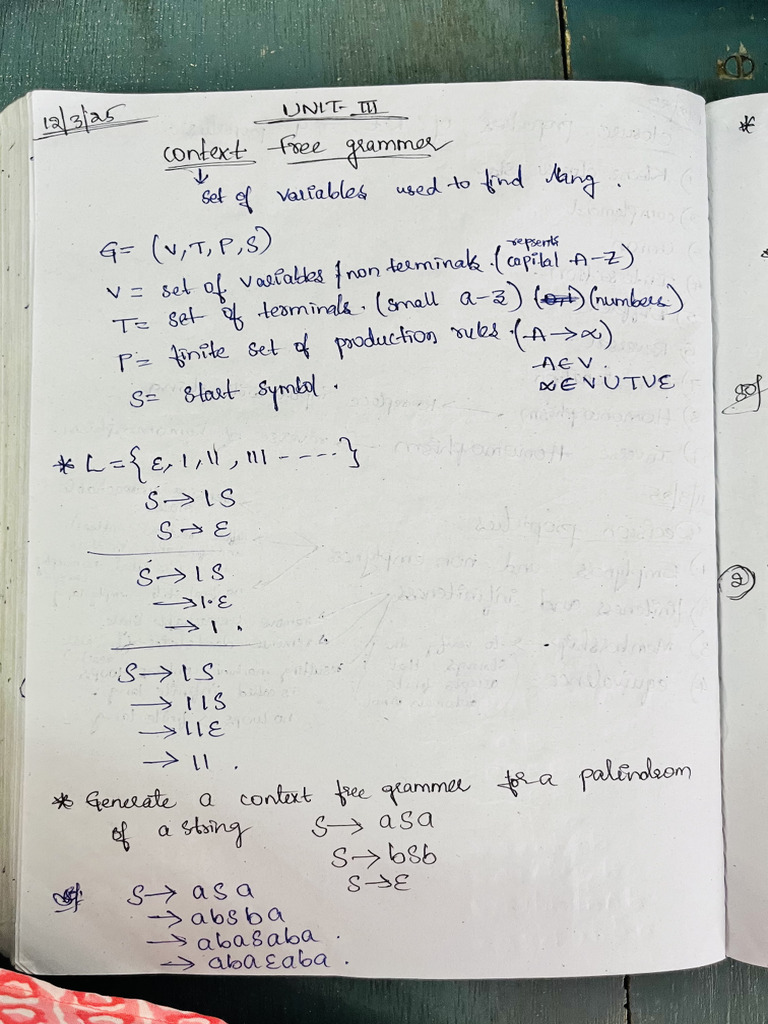 12/3/25
UNIT- III
context free grammer
↓
set of variables used to find lang.
G= (V,T,P,S)
V = set of variables / non terminals. (repsents capital A-Z)
T= set of terminals. (small a-z) (numbers)
P= finite set of production rules. (A→∝)
A∈V.
S= start symbol.
∝∈VUTUε
* L={ε,1,11,111-----}
S→1S
S→ε
S→1S
→1.ε
→1.
S→1S
→11S
→11ε
→11.
* Generate a context free grammer for a palindrom
of a string S→aSa
S→bSb
S→ε
Sol: S→aSa
→abSba
→abaSaba.
→abaεaba.
*
Sol
2